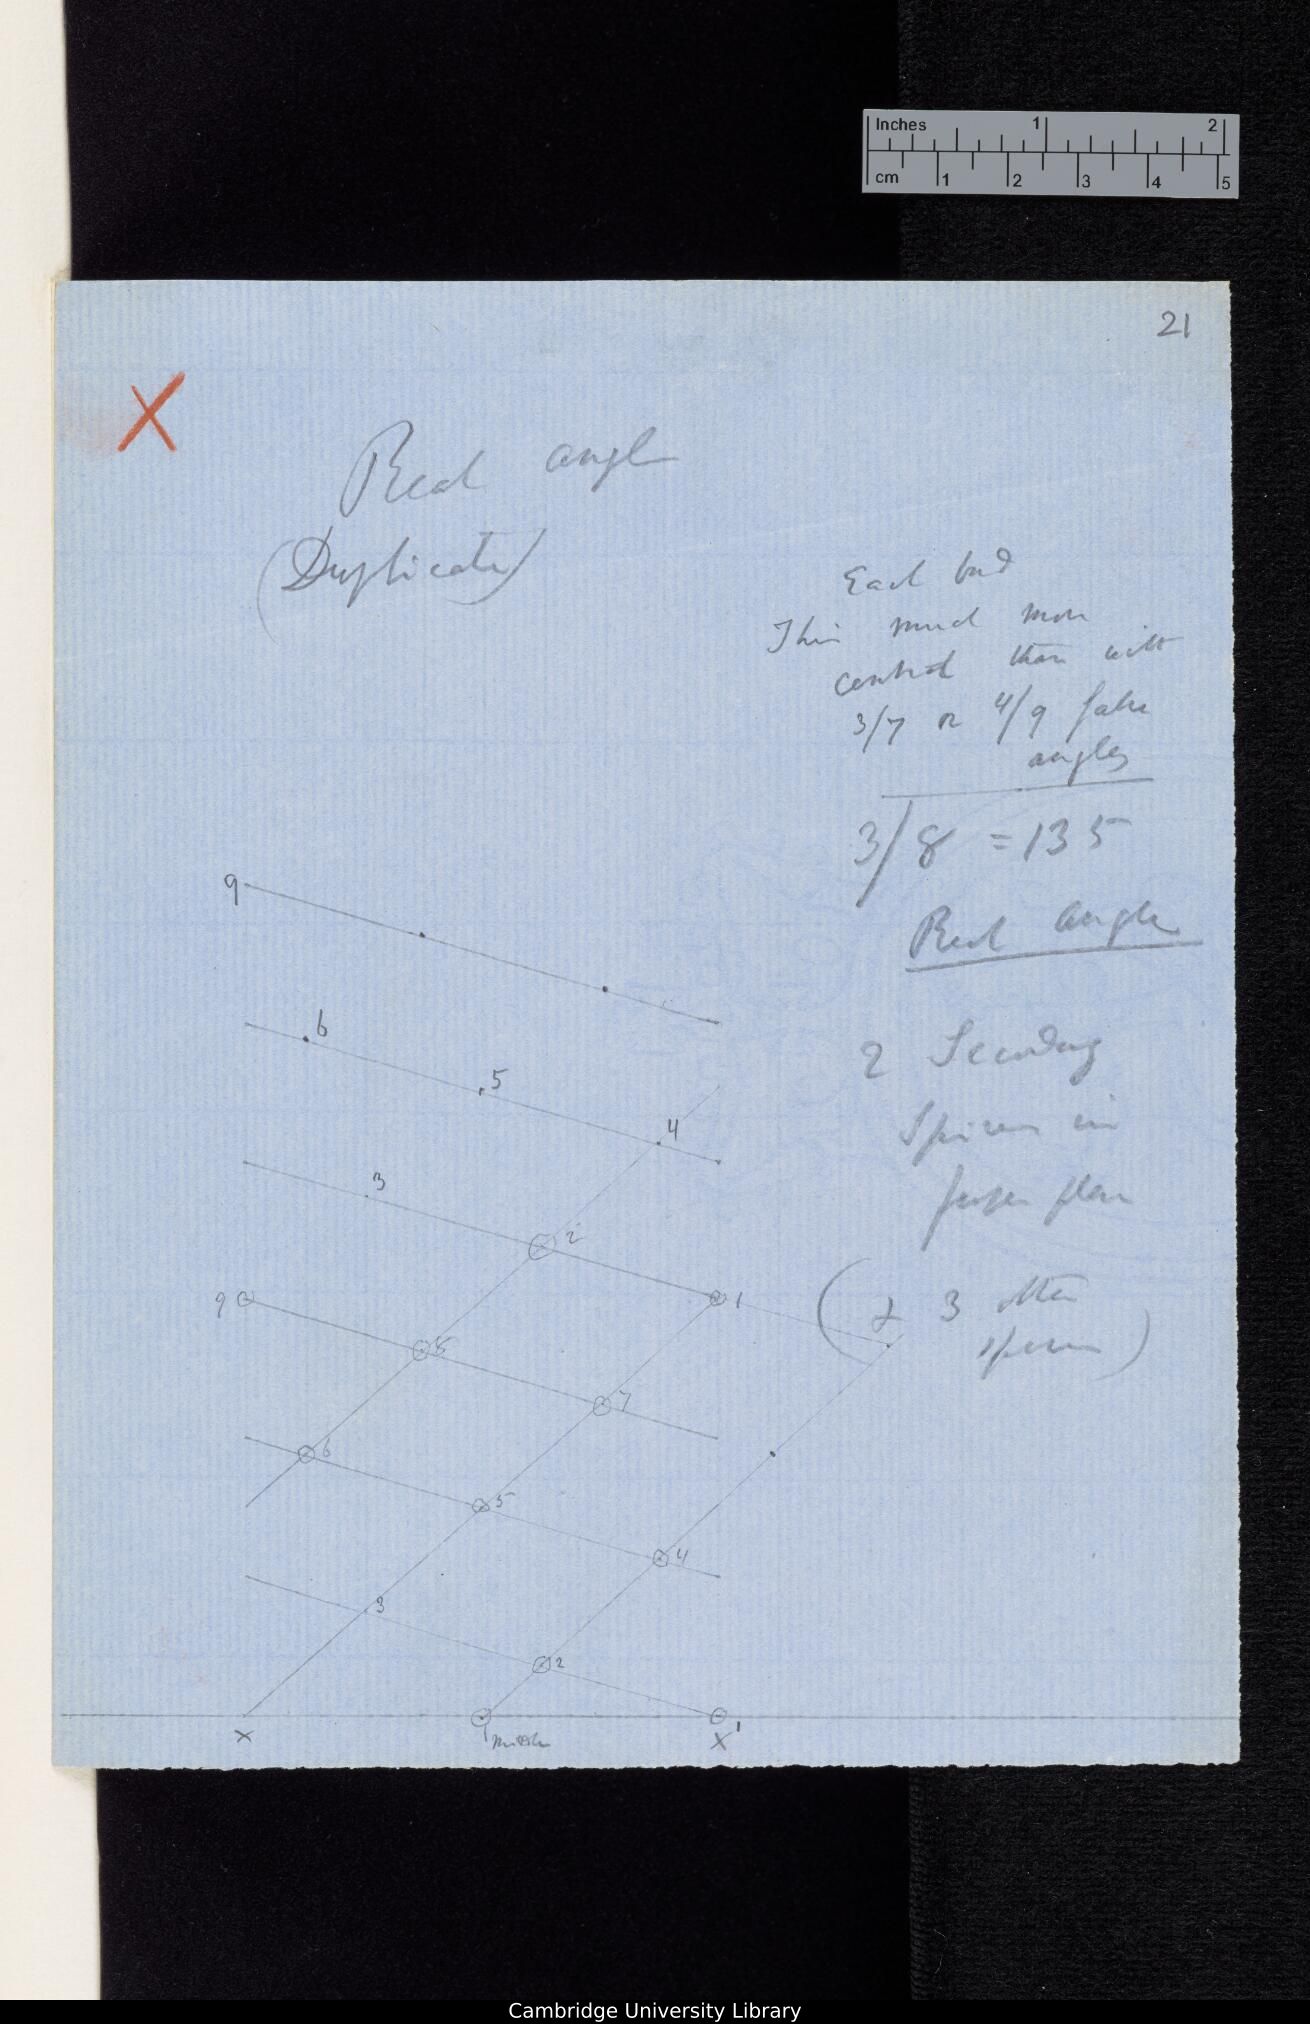 Inches 1 2
cm 1 2 3 4 5
21
X
Real angle
(Duplicate)
Each bud
This much more
central than with
3/7 or 4/9 false
angles
3/8 = 135
Real angle
2 Secondary
Spires in
proper plan
(& 3 other
spires)
9
6
5
4
3
2
9
1
8
7
6
5
4
3
2
X
middle
X'
Cambridge University Library